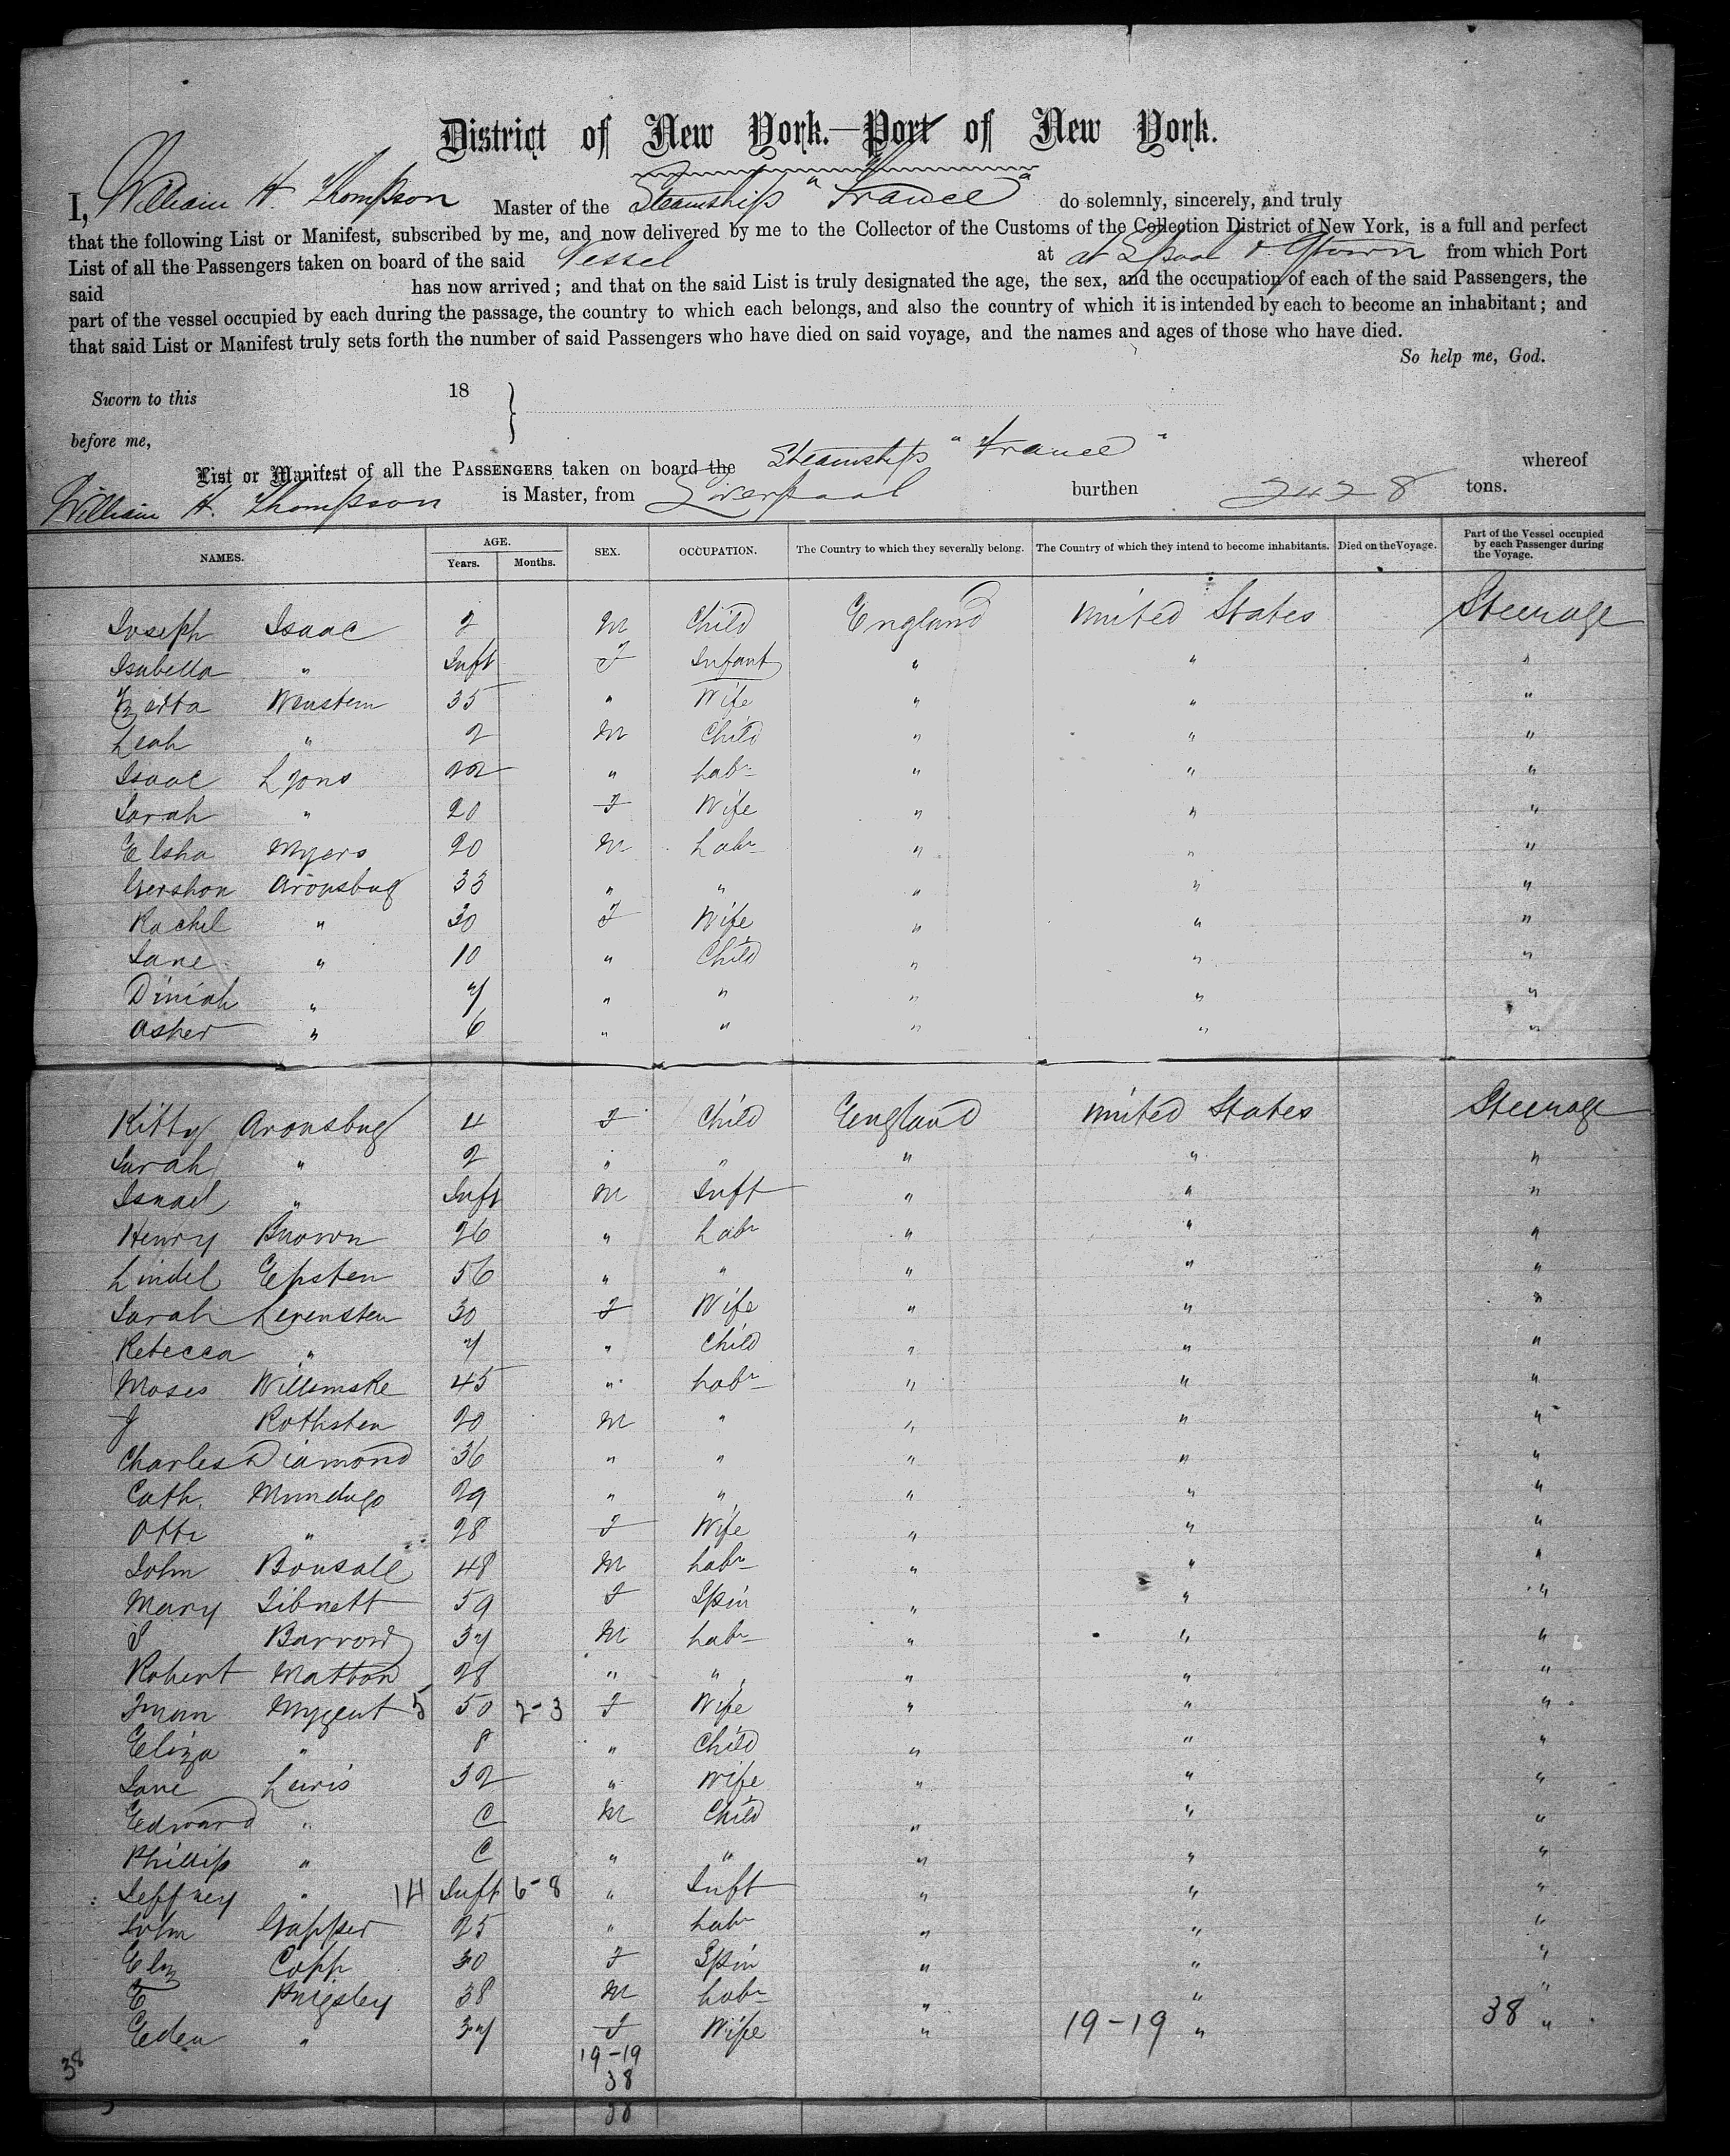 District of New York.—Port of New York.
I, William H. Thompson Master of the Steamship "France" do solemnly, sincerely, and truly
that the following List or Manifest, subscribed by me, and now delivered by me to the Collector of the Customs of the Collection District of New York, is a full and perfect
List of all the Passengers taken on board of the said Vessel at at L'pool & Q'town from which Port
said has now arrived; and that on the said List is truly designated the age, the sex, and the occupation of each of the said Passengers, the
part of the vessel occupied by each during the passage, the country to which each belongs, and also the country of which it is intended by each to become an inhabitant; and
that said List or Manifest truly sets forth the number of said Passengers who have died on said voyage, and the names and ages of those who have died.
So help me, God.
Sworn to this 18
before me,
List or Manifest of all the PASSENGERS taken on board the Steamship "France" whereof
William H. Thompson is Master, from Liverpool burthen 2428 tons.
NAMES. AGE. Years. Months. SEX. OCCUPATION. The Country to which they severally belong. The Country of which they intend to become inhabitants. Died on the Voyage. Part of the Vessel occupied by each Passenger during the Voyage.
Joseph Isaac 2 M Child England United States Steerage
Isabella " Inft F Infant " " "
Werstein 35 " Wife " " "
Leah " 2 M Child " " "
Isaac Lyons 22 " Labr " " "
Sarah " 20 F Wife " " "
Elsha Myers 20 M Labr " " "
Gershon Aronsbug 33 " " " " "
Rachel " 30 F Wife " " "
Jane " 10 " Child " " "
Diniah " 7 " " " " "
Asher " 6 " " " " "
Kitty Aronsbug 4 F Child England United States Steerage
Sarah " 2 " " " " "
Israel " Inft M Inft " " "
Henry Brown 26 " Labr " " "
Lindel Epsten 56 " " " " "
Sarah Levensten 30 F Wife " " "
Rebecca " 7 " Child " " "
Moses Willemske 45 " Labr " " "
J Rothsten 20 M " " " "
Charles Diamond 36 " " " " "
Cath. Mundugo 29 " " " " "
Otti " 28 F Wife " " "
John Bonsall 48 M Labr " " "
Mary Sibnett 59 F Spin " " "
S Barrow 37 M Labr " " "
Robert Matton 28 " " " " "
Mygent 5 50 2-3 F Wife " " "
Eliza " 8 " Child " " "
Jane Lewis 32 " Wife " " "
Edward " C M Child " " "
Phillip " C " " " " "
Jeffrey " 14 Inft 6-8 " Inft " " "
John Gapper 25 " Labr " " "
Eliz Copp 30 F Spin " " "
E Kingsley 38 M Labr " " "
Eden " 37 F Wife " 19-19 " 38 "
38 19-19
38
38